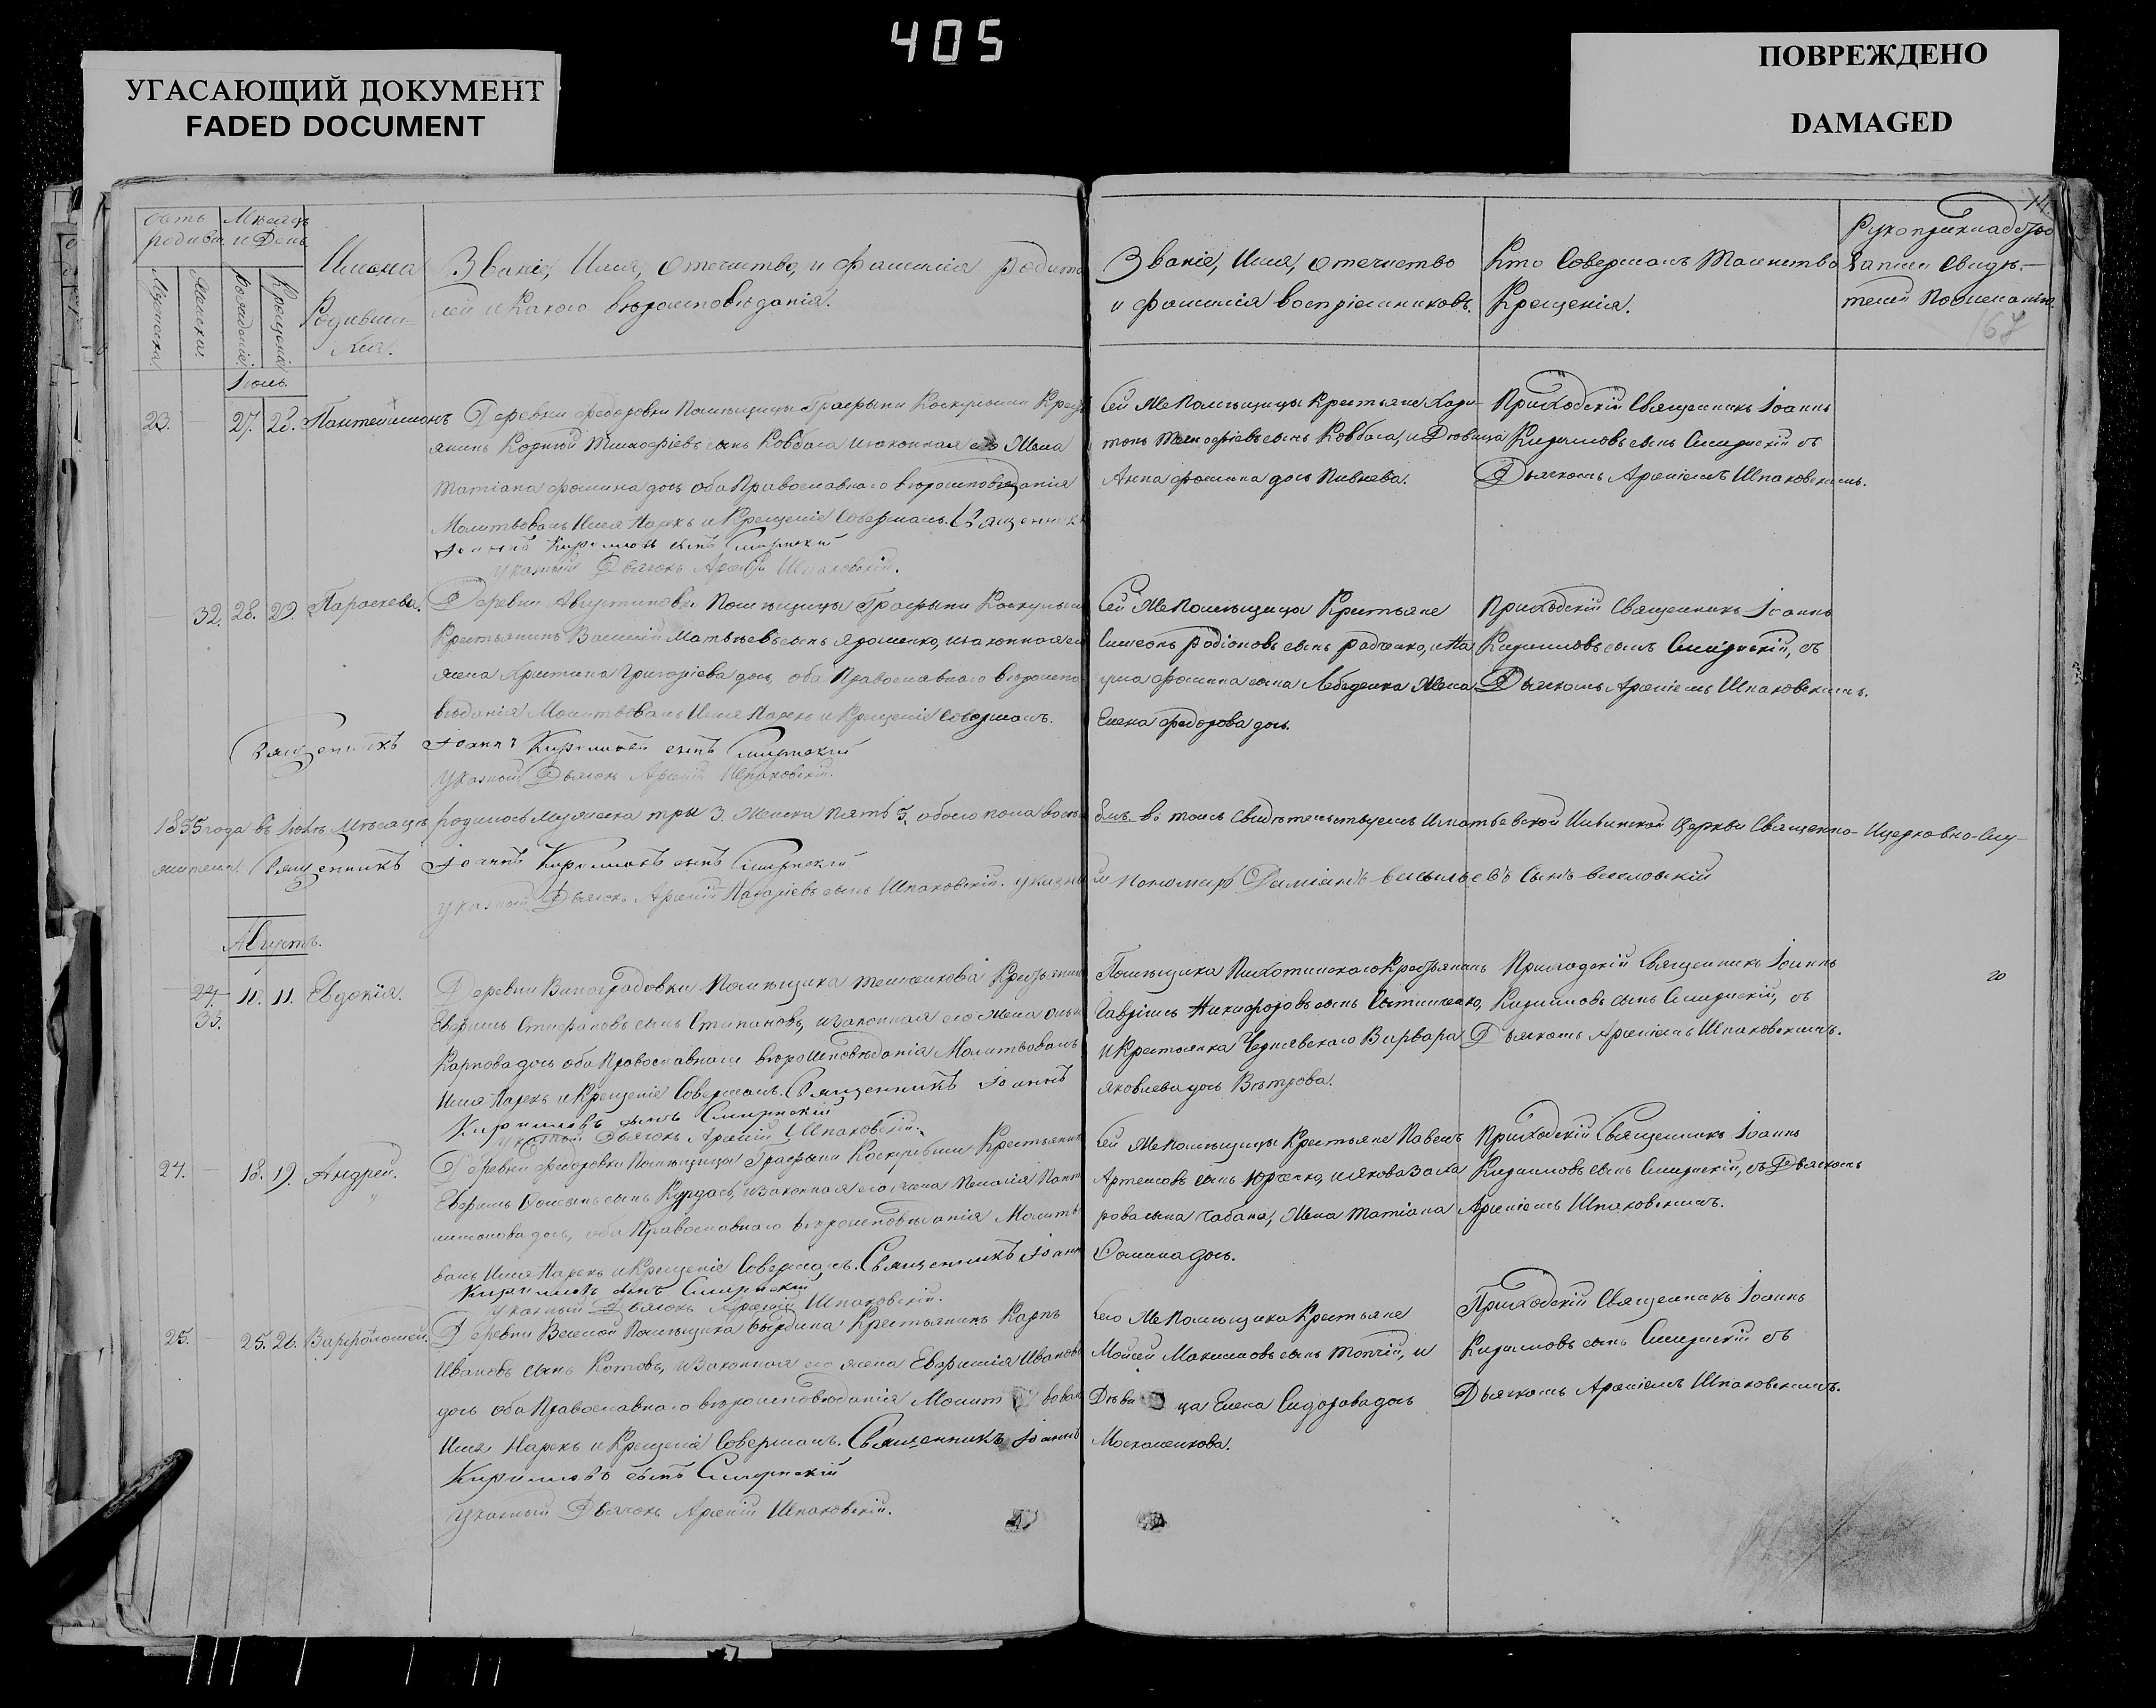 405
УГАСАЮЩИЙ ДОКУМЕНТ
FADED DOCUMENT
ПОВРЕЖДЕНО
DAMAGED
14.
167
Мѣсяцъ
и День
Имена
Родивши-
хся.
Званіе, Имя, Отечество, и фамилія родите
лей и Какого вѣроисповѣданія.
Званіе, Имя, Отечество
и фамилія воспріемниковъ.
Кто Совершалъ Таинство
Крещенія.
Рукоприкладство
Записи Свидѣ-
телей По желанію.
Іюль.
23. 27. 28. Пантелеимонъ
Деревни Федоровки Помѣщицы Графыни
сынъ Ковбаса и законная его Жена
Татіана Фомина дочь оба Православнаго вѣроисповѣданія
Молитвовалъ Имя Нарекъ и Крещеніе Совершалъ. Священникъ
Іоаннъ Кирилловъ сынъ
указный Дьячокъ Арсеній Шпаковскій.
Сей Же Помѣщицы Крестьяне Хари-
тонъ сынъ Ковбаса, и Дѣвица
Анна Фомина дочь Пивнева.
Приходскій Священникъ Іоаннъ
Кирилловъ сынъ съ
Дьячкомъ Арсеніемъ Шпаковскимъ.
32. 28. 29. Параскева.
Деревни Августиновки Помѣщицы Графыни
Крестьянинъ Василій Матвѣевъ сынъ Ярошенко, и законная его
жена Христина Григоріева дочь, оба Православнаго вѣроиспо-
вѣданія Молитвовалъ Имя Нарекъ и Крещеніе Совершалъ.
Священникъ Іоаннъ Кирилловъ сынъ
указный Дьячокъ Арсеній Шпаковскій.
Сей Же Помѣщицы Крестьяне
Симеонъ Родіоновъ сынъ Радченко, и На
ума Фомина сына Лебеденка Жена
Елена Федорова дочь.
Приходскій Священникъ Іоаннъ
Кирилловъ сынъ съ
Дьячкомъ Арсеніемъ Шпаковскимъ.
1855 года въ Іюлѣ Мѣсяцѣ родилось Мужеска три 3. Женска пять 5, обоего пола восемь
въ томъ свидѣтельствуемъ церкви Священно- и церковно-слу-
жители. Священникъ Іоаннъ Кирилловъ сынъ
указный Дьячокъ Арсеній сынъ Шпаковскій.
Пономарь Даміанъ Васильевъ Сынъ Веселовскій
Августъ.
24.
33. 10. 11. Евдокія.
Деревни Виноградовки Помѣщика
сынъ Степановъ, и законная его Жена
Карпова дочь оба Православнаго вѣроисповѣданія Молитвовалъ
Имя Нарекъ и Крещеніе Совершалъ. Священникъ Іоаннъ
Кирилловъ сынъ
указный Дьячокъ Арсеній Шпаковскій.
Помѣщика Крестьянинъ
Гавріилъ Никифоровъ сынъ
и Крестьянка Чернявскаго Варвара
Яковлева дочь Вѣтрова.
Приходскій Священникъ Іоаннъ
Кирилловъ сынъ съ
Дьячкомъ Арсеніемъ Шпаковскимъ.
20
24. 18. 19. Андрей.
Деревни Федоровки Помѣщицы Графыни Крестьянинъ
сынъ и законная его жена Пелагія
дочь, оба Православнаго вѣроисповѣданія Молитво
валъ Имя Нарекъ и Крещеніе Совершалъ. Священникъ Іоаннъ
Кирилловъ сынъ
указный Дьячокъ Арсеній Шпаковскій.
Сей Же Помѣщицы Крестьяне Павелъ
Артемовъ сынъ Юрченко, и Якова
сына Чабана, Жена Татіана
Фомина дочь.
Приходскій Священникъ Іоаннъ
Кирилловъ сынъ съ Дьячкомъ
Арсеніемъ Шпаковскимъ.
25. 25. 26. Варфоломей.
Деревни Веселой Помѣщика Крестьянинъ Карпъ
Ивановъ сынъ Котовъ, и законная его жена Евфимія Иванова
дочь оба Православнаго вѣроисповѣданія Молитвовалъ
Имя Нарекъ и Крещеніе Совершалъ. Священникъ Іоаннъ
Кирилловъ сынъ
указный Дьячокъ Арсеній Шпаковскій.
Сего Же Помѣщика Крестьяне
Мойсей Максимовъ сынъ Топчій, и
Дѣвица Елена Сидорова дочь
Москаленкова.
Приходскій Священникъ Іоаннъ
Кирилловъ сынъ съ
Дьячкомъ Арсеніемъ Шпаковскимъ.